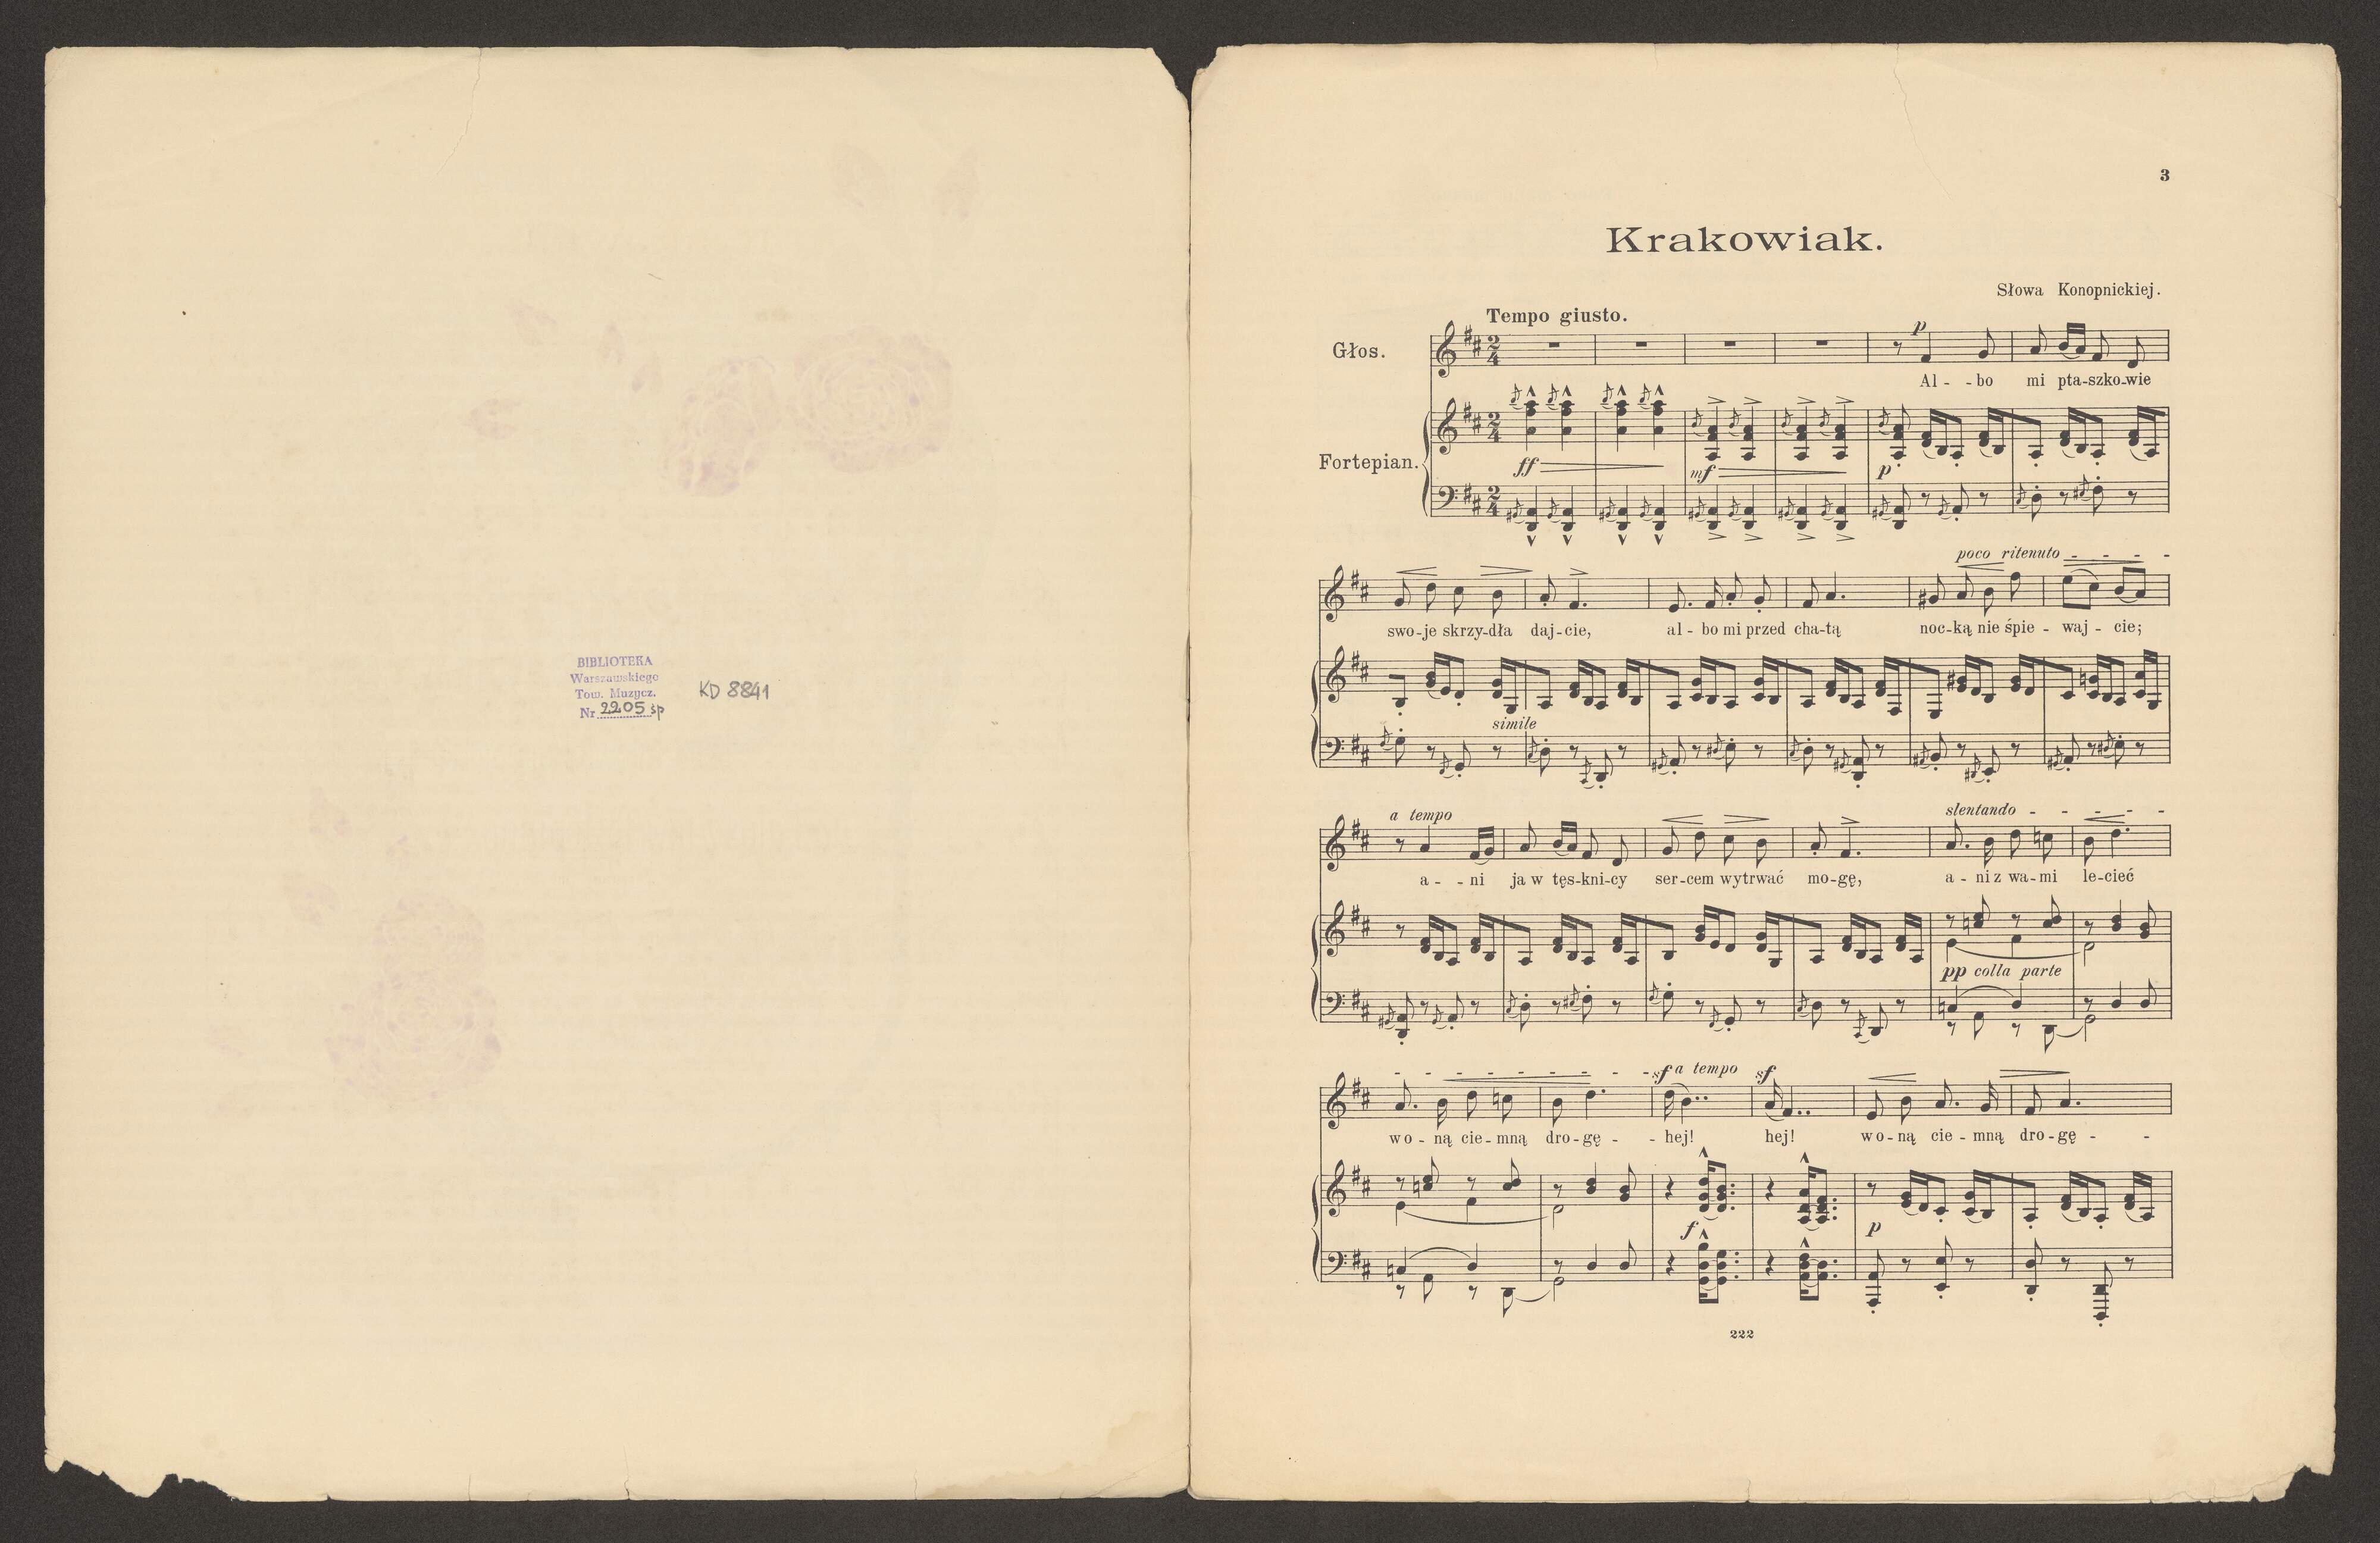 BIBLIOTEKA
Warszawskiego
Tow. Muzycz.
Nr 2205 śp
KD 8841
3
Krakowiak.
Słowa Konopnickiej.
Tempo giusto.
Głos.
p
Al - - bo mi pta-szko-wie
Fortepian.
ff mf p
poco ritenuto - - - -
swo-je skrzy-dła daj-cie, al - bo mi przed cha-tą noc-ką nie śpie - waj - cie;
simile
a tempo slentando - - - - -
a - - ni ja w tęs-kni-cy ser-cem wytrwać mo-gę, a - ni z wa-mi le-cieć
pp colla parte
- - - - - - - - - sf a tempo sf
wo - ną cie - mną dro-gę - - hej! hej! wo - ną cie - mną dro-gę - -
f p
222